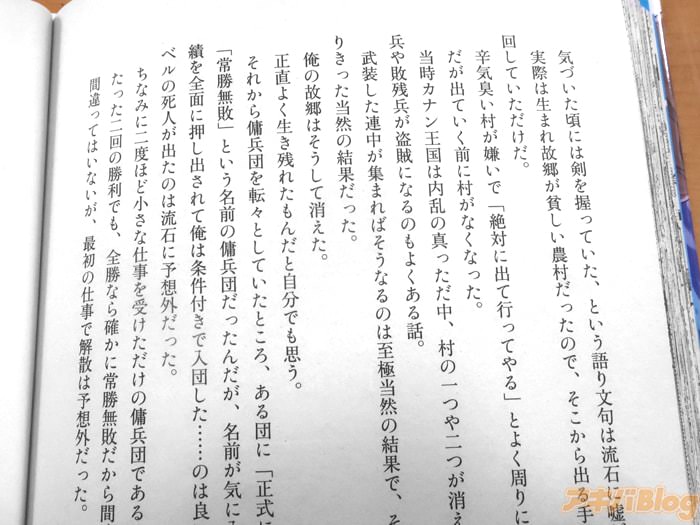 気づいた頃には剣を握っていた、という語り文句は流石に嘘
実際は生まれ故郷が貧しい農村だったので、そこから出る手
回していただけだ。
辛気臭い村が嫌いで「絶対に出て行ってやる」とよく周りに
だが出ていく前に村がなくなった。
当時カナン王国は内乱の真っただ中、村の一つや二つが消え
兵や敗残兵が盗賊になるのもよくある話。
武装した連中が集まればそうなるのは至極当然の結果で、そ
りきった当然の結果だった。
俺の故郷はそうして消えた。
正直よく生き残れたもんだと自分でも思う。
それから傭兵団を転々としていたところ、ある団に「正式に
「常勝無敗」という名前の傭兵団だったんだが、名前が気に
績を全面に押し出されて俺は条件付きで入団した……のは良
ベルの死人が出たのは流石に予想外だった。
ちなみに二度ほど小さな仕事を受けただけの傭兵団である
たった二回の勝利でも、全勝なら確かに常勝無敗だから間
間違ってはいないが、最初の仕事で解散は予想外だった。
アキバBlog